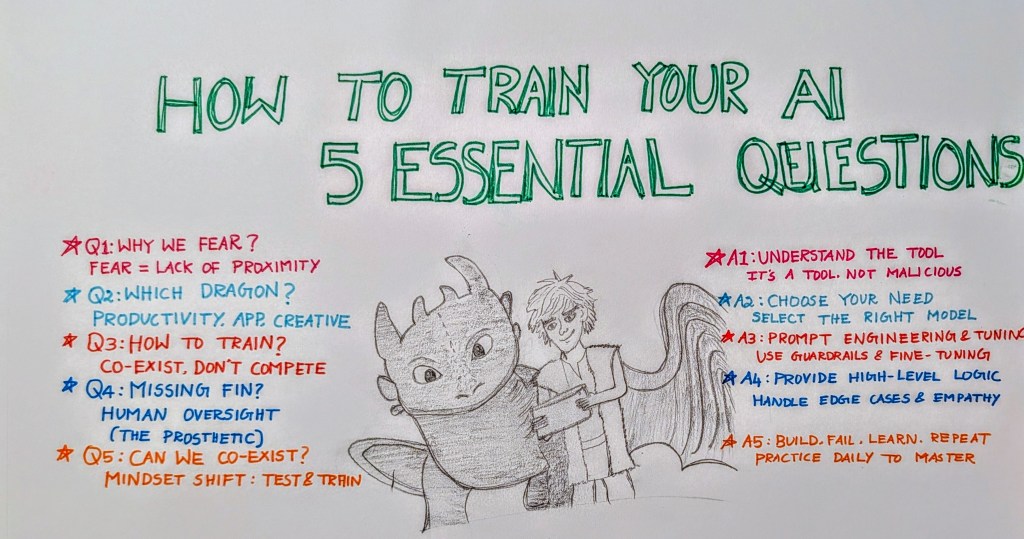 HOW TO TRAIN YOUR AI
5 ESSENTIAL QEUESTIONS
Q1: WHY WE FEAR?
FEAR = LACK OF PROXIMITY
Q2: WHICH DRAGON?
PRODUCTIVITY. APP. CREATIVE
Q3: HOW TO TRAIN?
CO-EXIST, DON'T COMPETE
Q4: MISSING FIN?
HUMAN OVERSIGHT
(THE PROSTHETIC)
Q5: CAN WE CO-EXIST?
MINDSET SHIFT: TEST & TRAIN
A1: UNDERSTAND THE TOOL
IT'S A TOOL. NOT MALICIOUS
A2: CHOOSE YOUR NEED
SELECT THE RIGHT MODEL
A3: PROMPT ENGINEERING & TUNING
USE GUARDRAILS & FINE-TUNING
A4: PROVIDE HIGH-LEVEL LOGIC
HANDLE EDGIE CASES & EMPATHY
A5: BUILD. FAIL. LEARN. REPEAT
PRACTICE DAILY TO MASTER